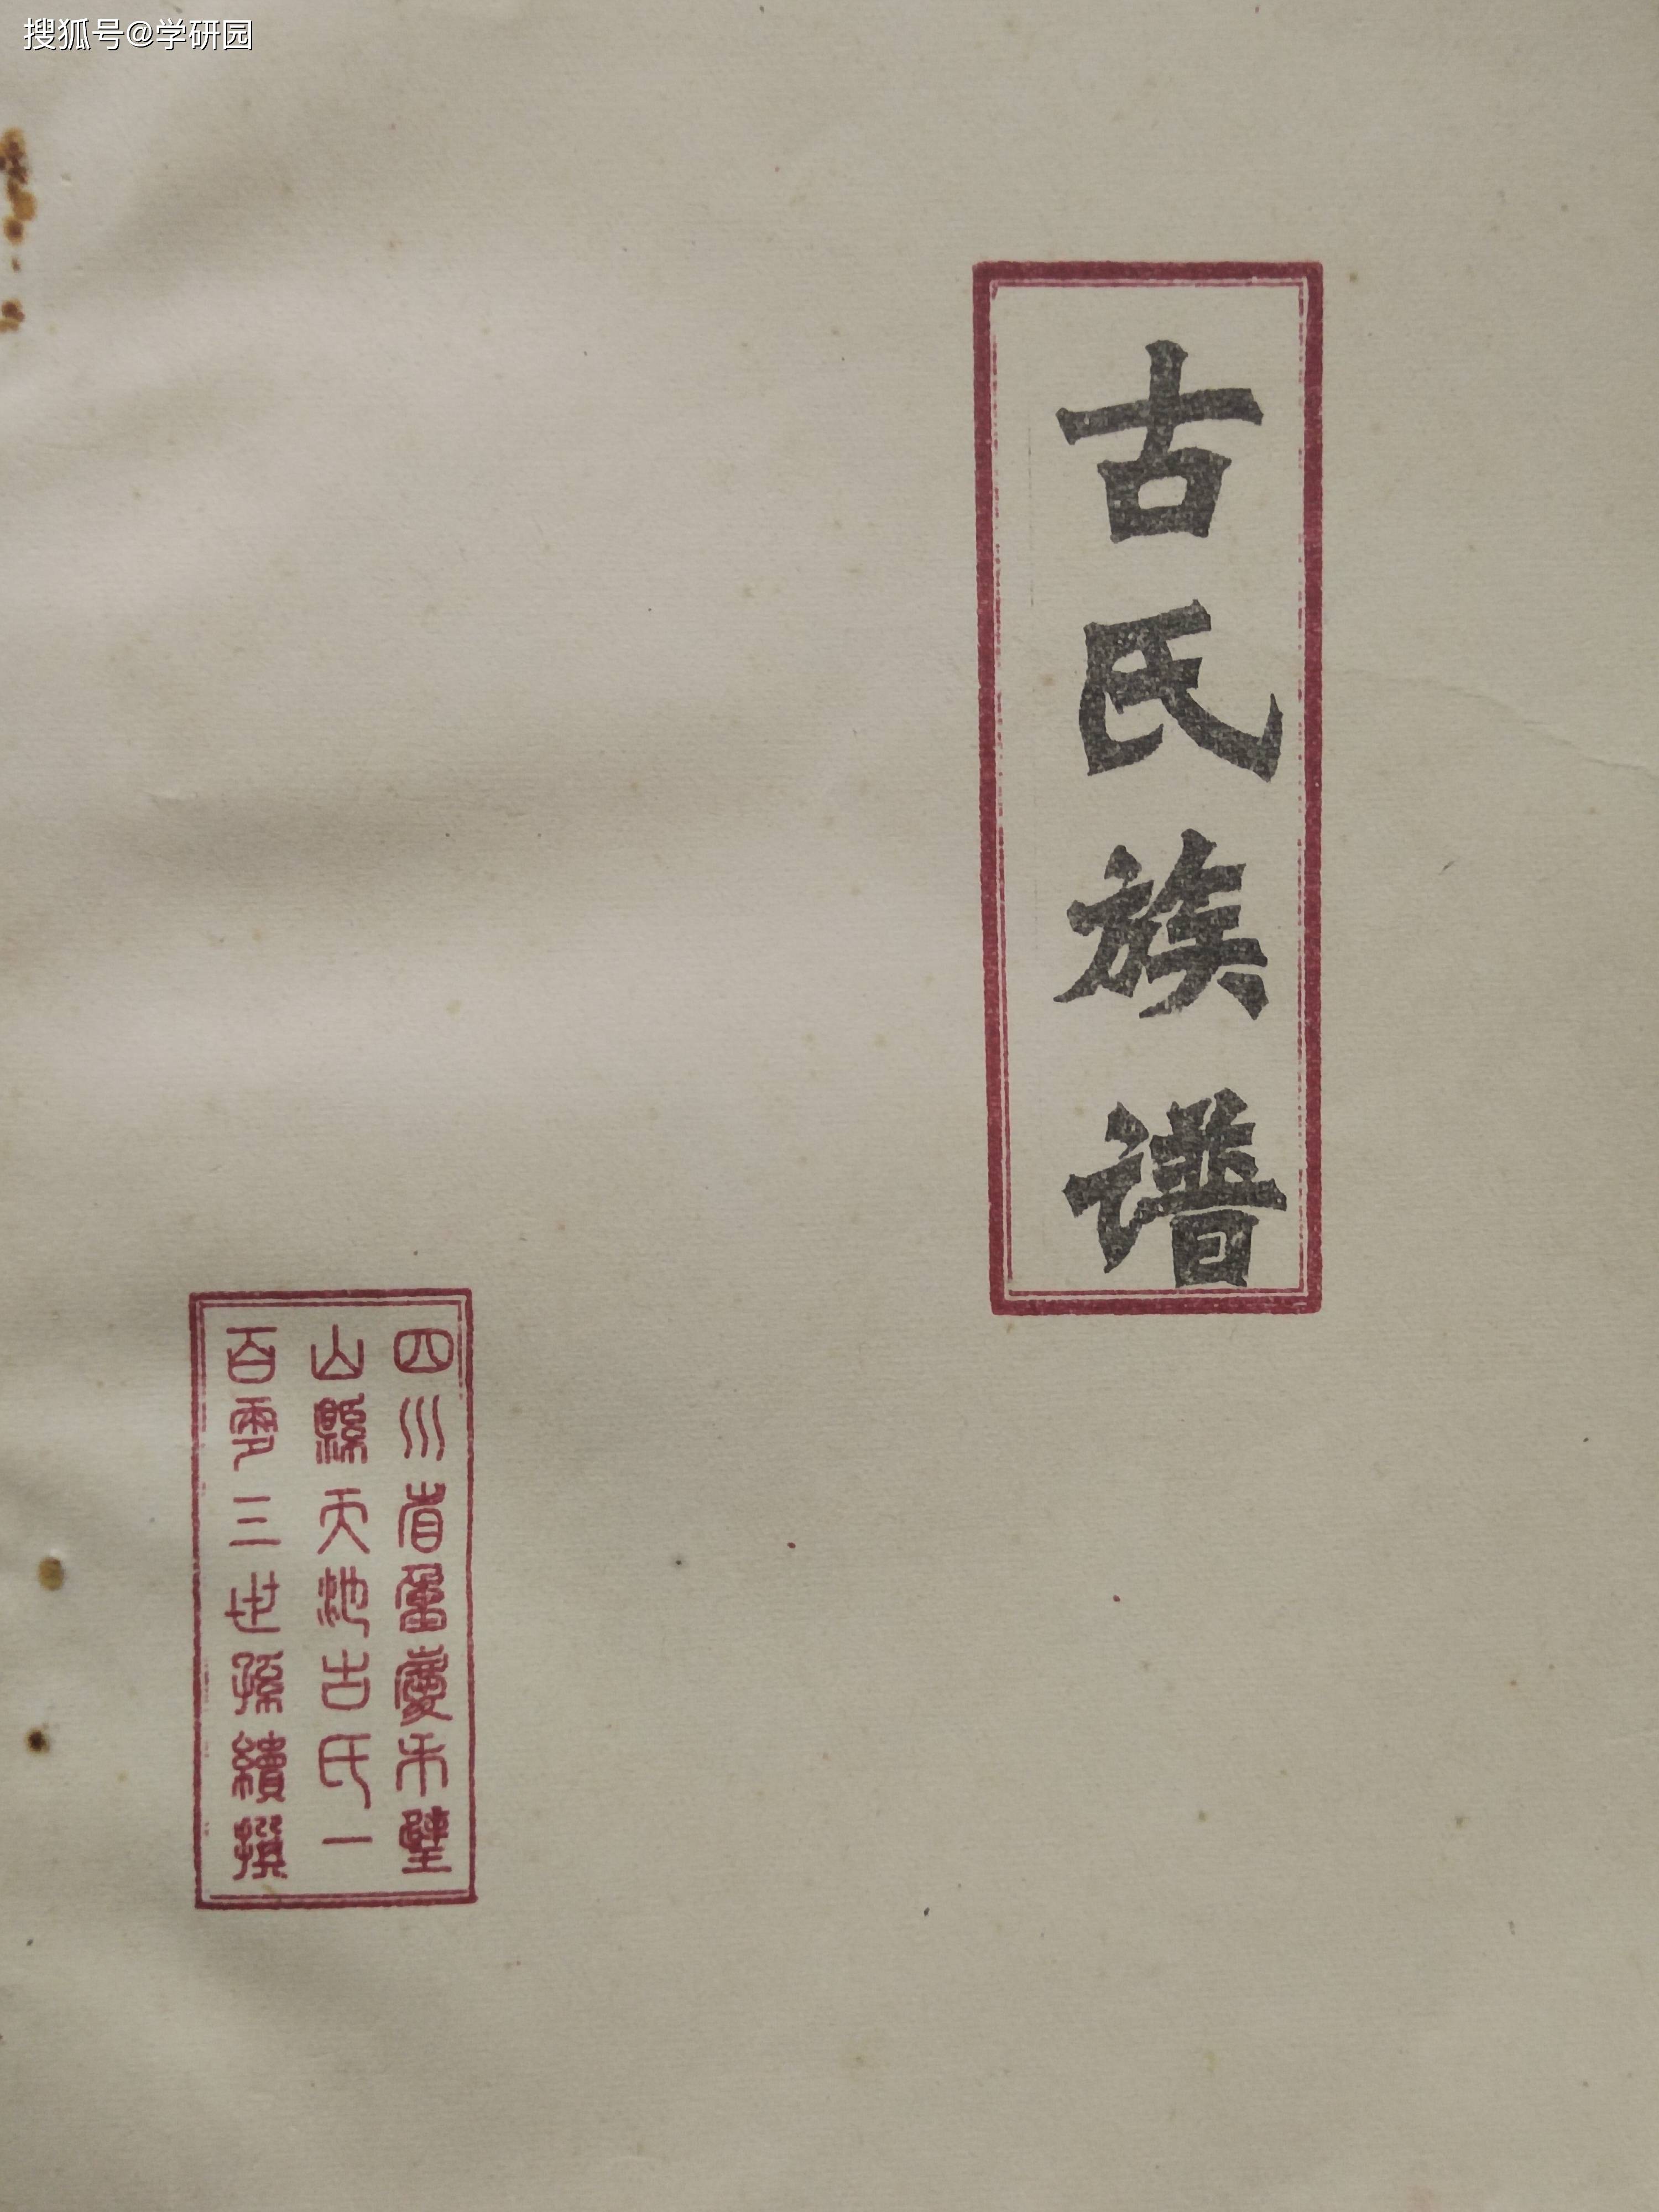 搜狐号@学研园
古氏族谱
四川省重慶市璧
山縣天池古氏一
百零三世孫續撰